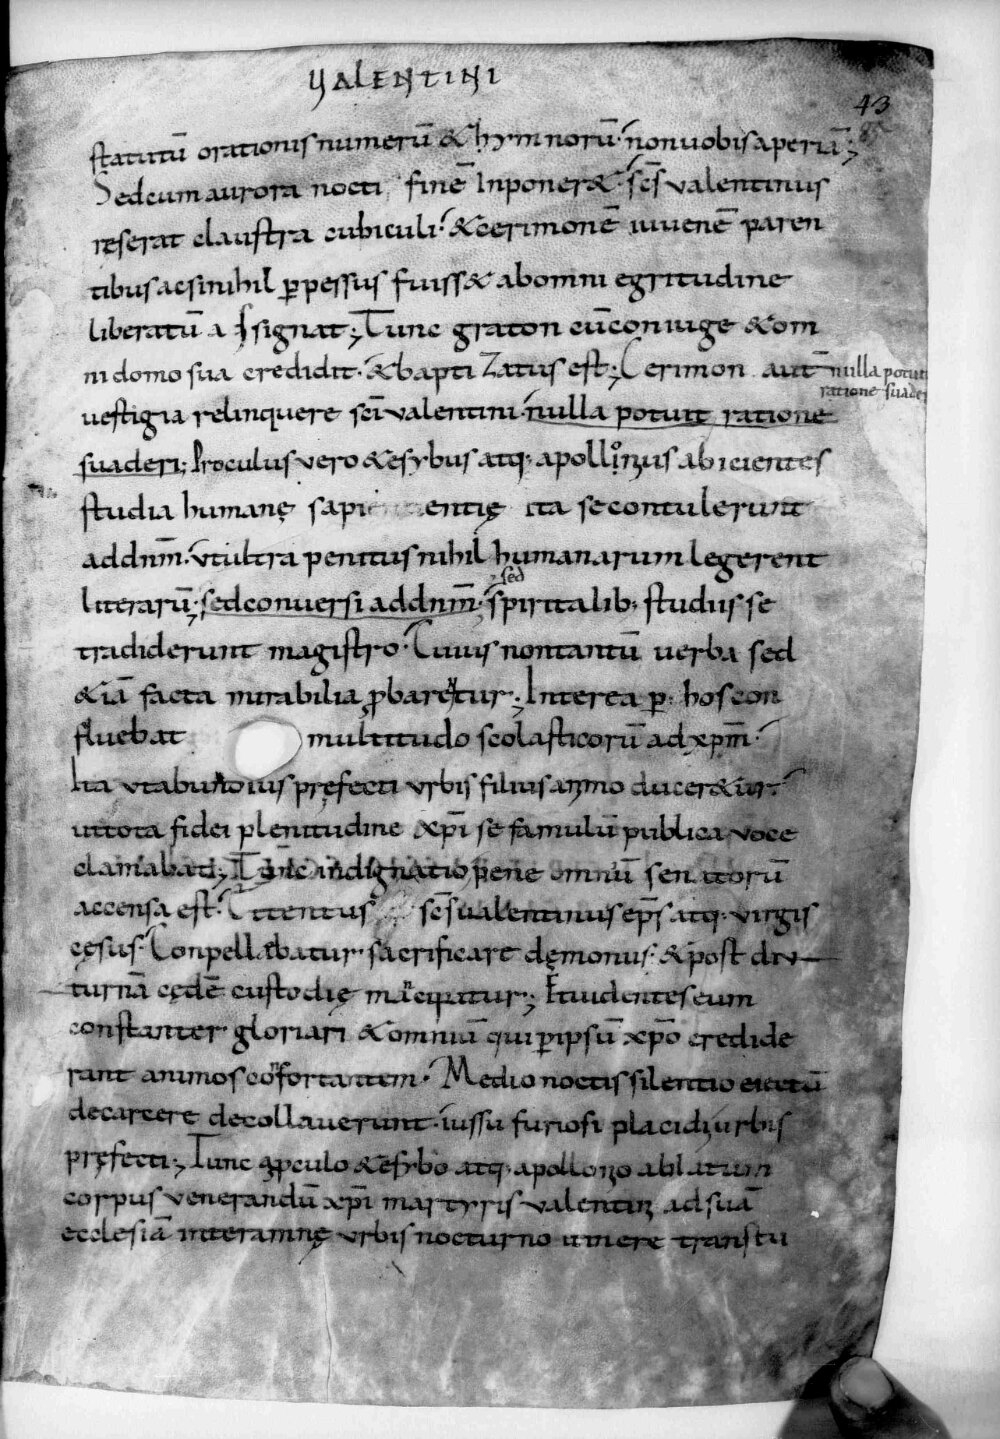 VALENTINI
43
statutū orationis numerū & hymnorū non uobis aperiā;
Sed cum aurora nocti finē Inponer& scs̄ valentinus
reserat claustra cubiculi & cerimonē iuuenē paren
tibus ac si nihil ꝑpessus fuiss& ab omni egritudine
liberatū assignat; Tunc graton cū coniuge & om
ni domo sua credidit & baptiZatus est; Cerimon aut̄
nulla potuit
ratione suaderi
uestigia relinquere scī valentini nulla potuit ratione
suaderi; Proculus vero & efybus atq; apollonius abicientes
studia humanę sapientię ita se contulerunt
ad dnm̄ vt ultra penitus nihil humanarum legerent
sed
literarū; sed conuersi ad dnm̄ spiritalib; studiis se
tradiderunt magistro Cuius non tantū uerba sed
&iā facta mirabilia ꝓbarentur; Interea ꝑ hos con
fluebat multitudo scolasticorū ad xpm̄
Ita vt abundius pręfecti vrbis filius anno ducer&ur
ut tota fidei plenitudine xpī se famulū publica voce
clamabat; Tunc indignatio pene omniū senatorū
accensa est Ctentus scs̄ ualentinus eps̄ atq; virgis
cęsus Conpellabatur sacrificare dęmoniis & post diu
turnā cędē custodię mācipatur; Et uidentes eum
constanter gloriari & omniū qui ꝑ ipsū xpō credide
rant animos cōfortantem Medio noctis silentio eiectū
de carcere decollauerunt iussu furiosi placidi urbis
pręfecti; Tunc a ꝓculo & efybo atq; apollonio ablatum
corpus venerandū xpī martyris valentini ad suā
ecclesiā interamnę vrbis nocturno itinere transtu